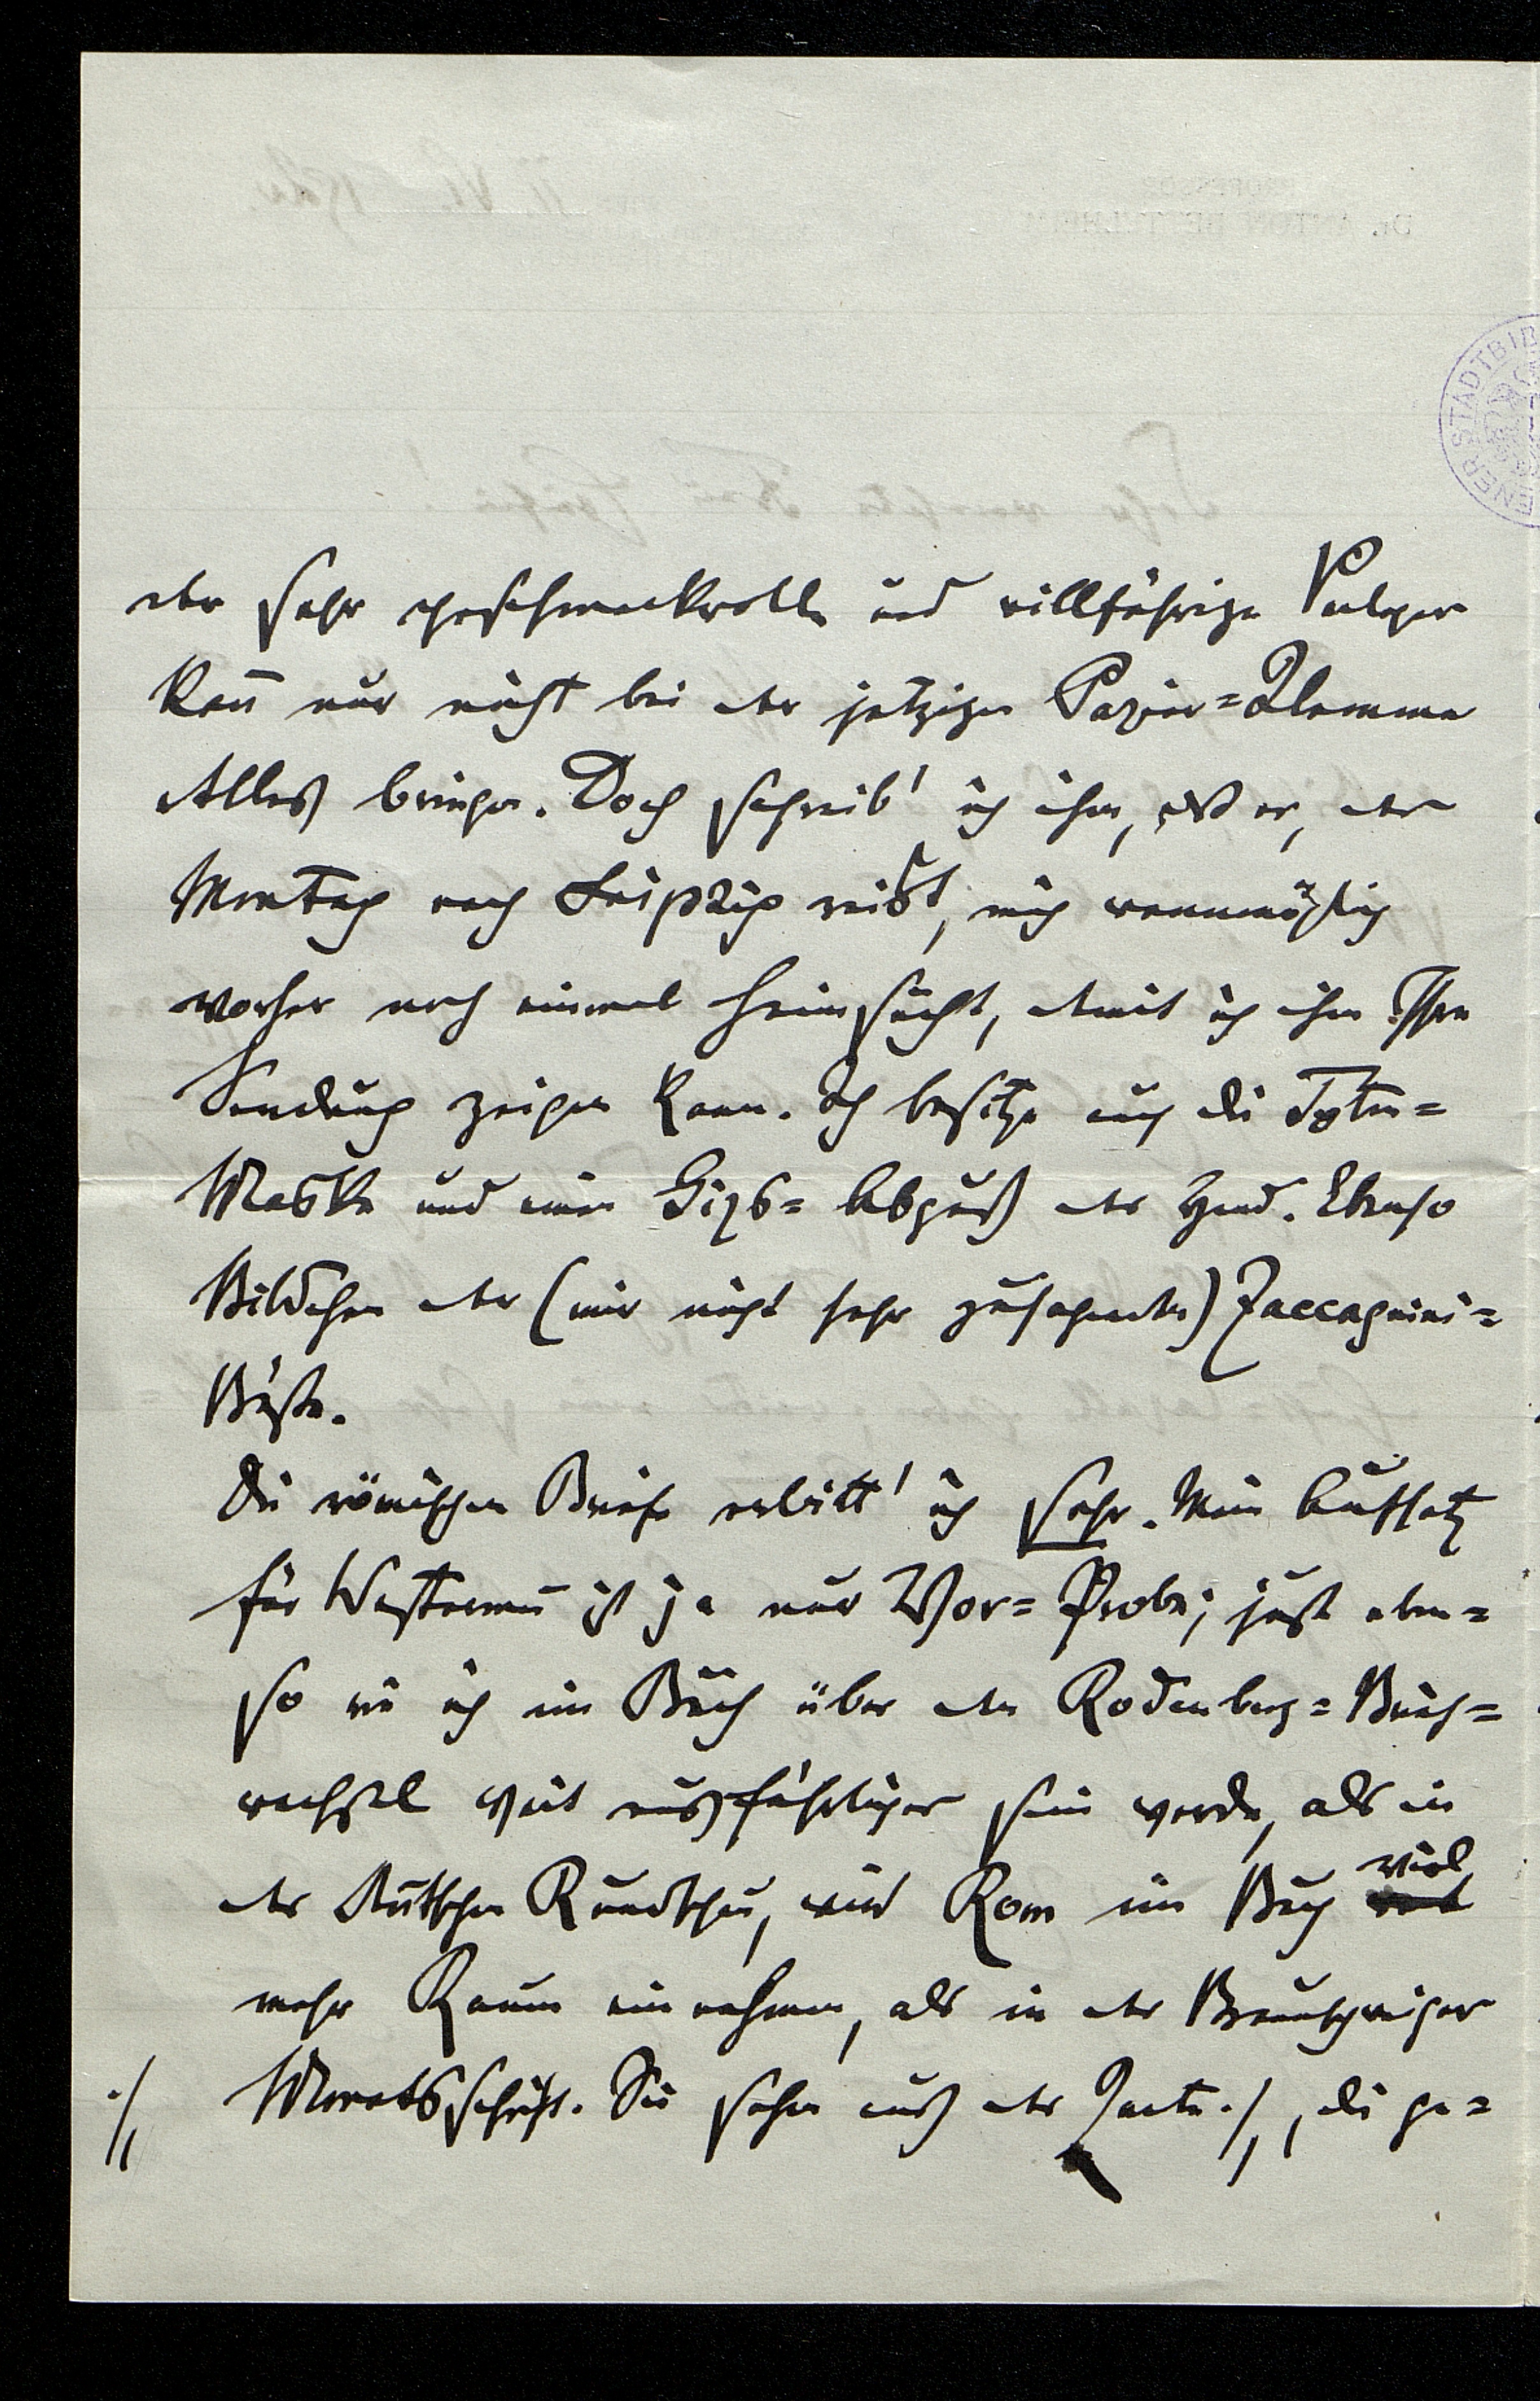 der sehr geschmackvolle und willfährige Verleger
kan̅ nur nicht bei der jetzigen Papier=Klemme
Alles bringen. Doch schreib' ich ihm, daß er, der
Montag nach Leipzig reist, mich womöglich
vorher noch einmal heimsucht, damit ich ihm Ihre
Sendung zeigen kann. Ich besitze auch die Toten=
Maske und einen Gips=Abguß der Hand. Ebenso
Bildchen der (mir nicht sehr zusagenden) Zaccagnini=
Büste.
Die römischen Briefe erbitt' ich sehr. Mein Aufsatz
für Westerman̅ ist ja nur Vor=Probe; just eben=
so wie ich im Buch über den Rodenberg=Brief=
wechsel weit ausführlicher sein werde, als in
der Deutschen Rundschau, wird Rom im Buch viel
mehr Raum einnehmen, als in der Braunschweiger
./. Monatsschrift. Sie sehen aus der Karte ./., die ge=
WIENER STADTBIB